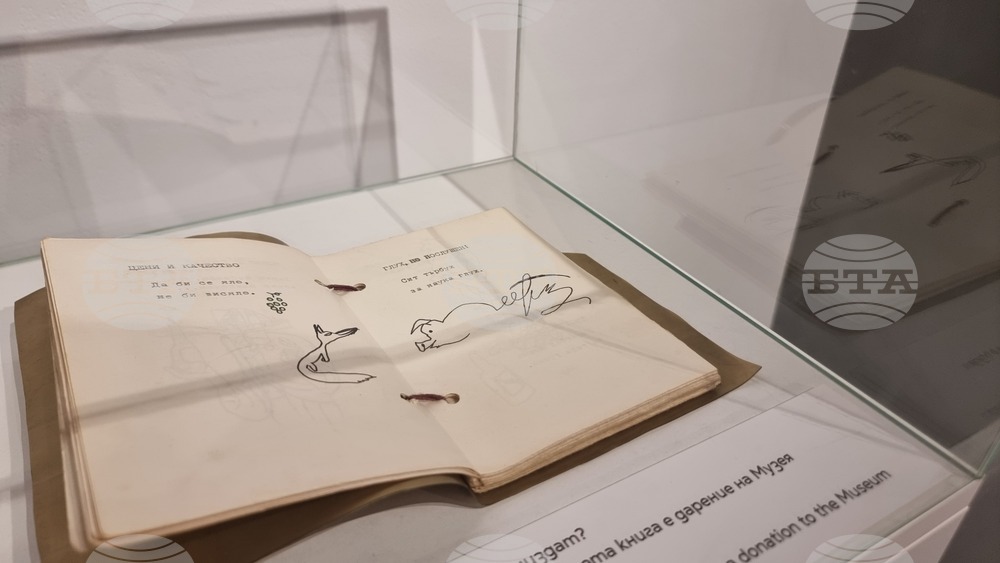 ЦЕНИ И КАЧЕСТВО
Да би се яло,
не би висяло.
ГЛУХ, НО ПОСЛУШЕН
Сит търбух
за наука глух.
книга е дарение на Музея
donation to the Museum
БТА